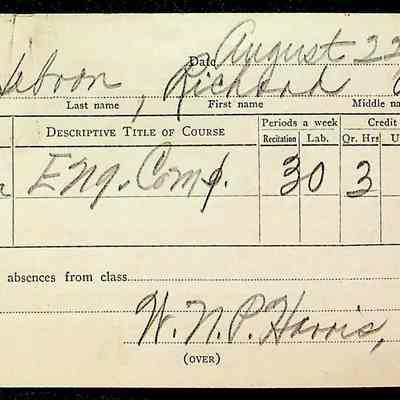 Date August 22
Richard
Last name First name Middle na
DESCRIPTIVE TITLE OF COURSE Periods a week Credit
Recitation Lab. Qr. Hrs U
Eng. Comp. 3 0 3
absences from class
W. N. P. Harris,
(OVER)